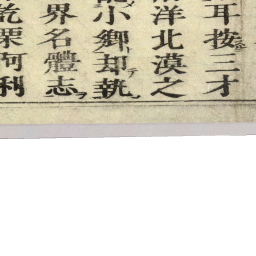 耳按三才
洋北漠之
小鄉却執
界名體志
乾栗阿利